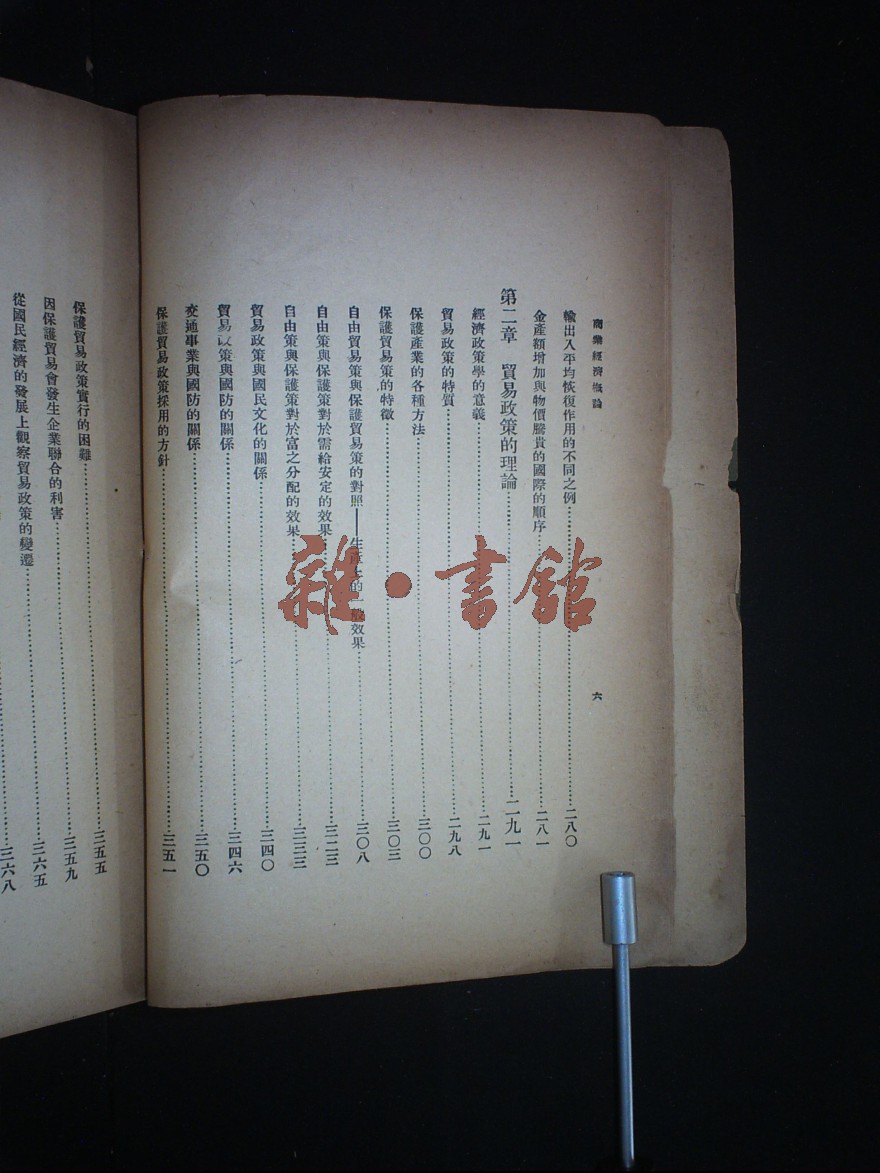 商業經濟概論
六
輸出入平均恢復作用的不同之例……二八〇
金產額增加與物價騰貴的國際的順序……二八一
第二章　貿易政策的理論……二九一
經濟政策學的意義……二九一
貿易政策的特質……二九八
保護產業的各種方法……三〇〇
保護貿易策的特徵……三〇三
自由貿易策與保護貿易策的對照——生產上的一般效果……三〇八
自由策與保護策對於需給安定的效果……三二三
自由策與保護策對於富之分配的效果……三三三
貿易政策與國民文化的關係……三四〇
貿易政策與國防的關係……三四六
交通事業與國防的關係……三五〇
保護貿易政策採用的方針……三五一
三五五
保護貿易政策實行的困難……三五九
因保護貿易會發生企業聯合的利害……三六五
從國民經濟的發展上觀察貿易政策的變遷……三六八
雜·書館